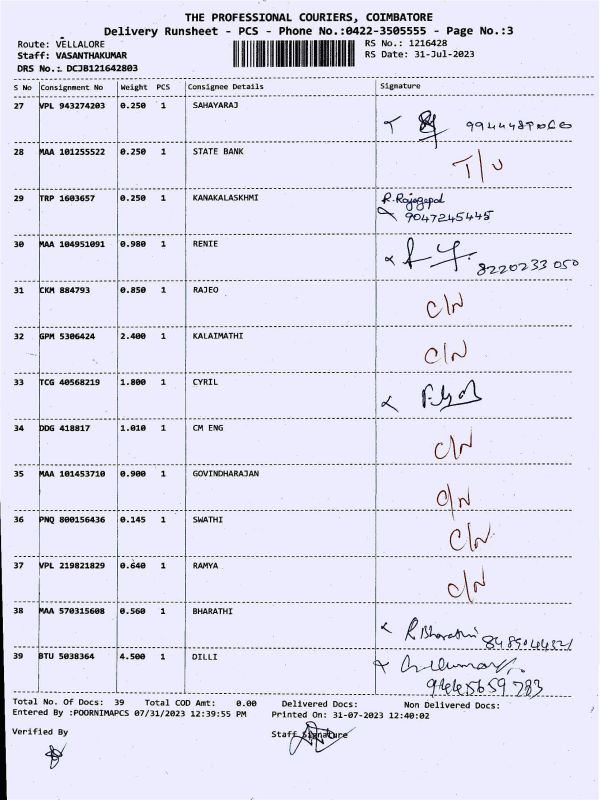 THE PROFESSIONAL COURIERS, COIMBATORE
Delivery Runsheet - PCS - Phone No.:0422-3505555 - Page No.:3
Route: VELLALORE RS No.: 1216428
Staff: VASANTHAKUMAR RS Date: 31-Jul-2023
DRS No.: DCJB121642803
S No Consignment No Weight PCS Consignee Details Signature
27 VPL 943274203 0.250 1 SAHAYARAJ
28 MAA 101255522 0.250 1 STATE BANK T/U
29 TRP 1603657 0.250 1 KANAKALASKHMI R.Rajagopal
9047245445
30 MAA 104951091 0.980 1 RENIE 8220233050
31 CKM 884793 0.850 1 RAJEO C/N
32 GPM 5306424 2.400 1 KALAIMATHI C/N
33 TCG 40568219 1.800 1 CYRIL
34 DDG 418817 1.010 1 CM ENG C/N
35 MAA 101453710 0.900 1 GOVINDHARAJAN C/N
36 PNQ 800156436 0.145 1 SWATHI C/N
37 VPL 219821829 0.640 1 RAMYA C/N
38 MAA 570315608 0.560 1 BHARATHI R.Bharathi
39 BTU 5038364 4.500 1 DILLI
9445659783
Total No. Of Docs: 39 Total COD Amt: 0.00 Delivered Docs: Non Delivered Docs:
Entered By :POORNIMAPCS 07/31/2023 12:39:55 PM Printed On: 31-07-2023 12:40:02
Verified By Staff Signature